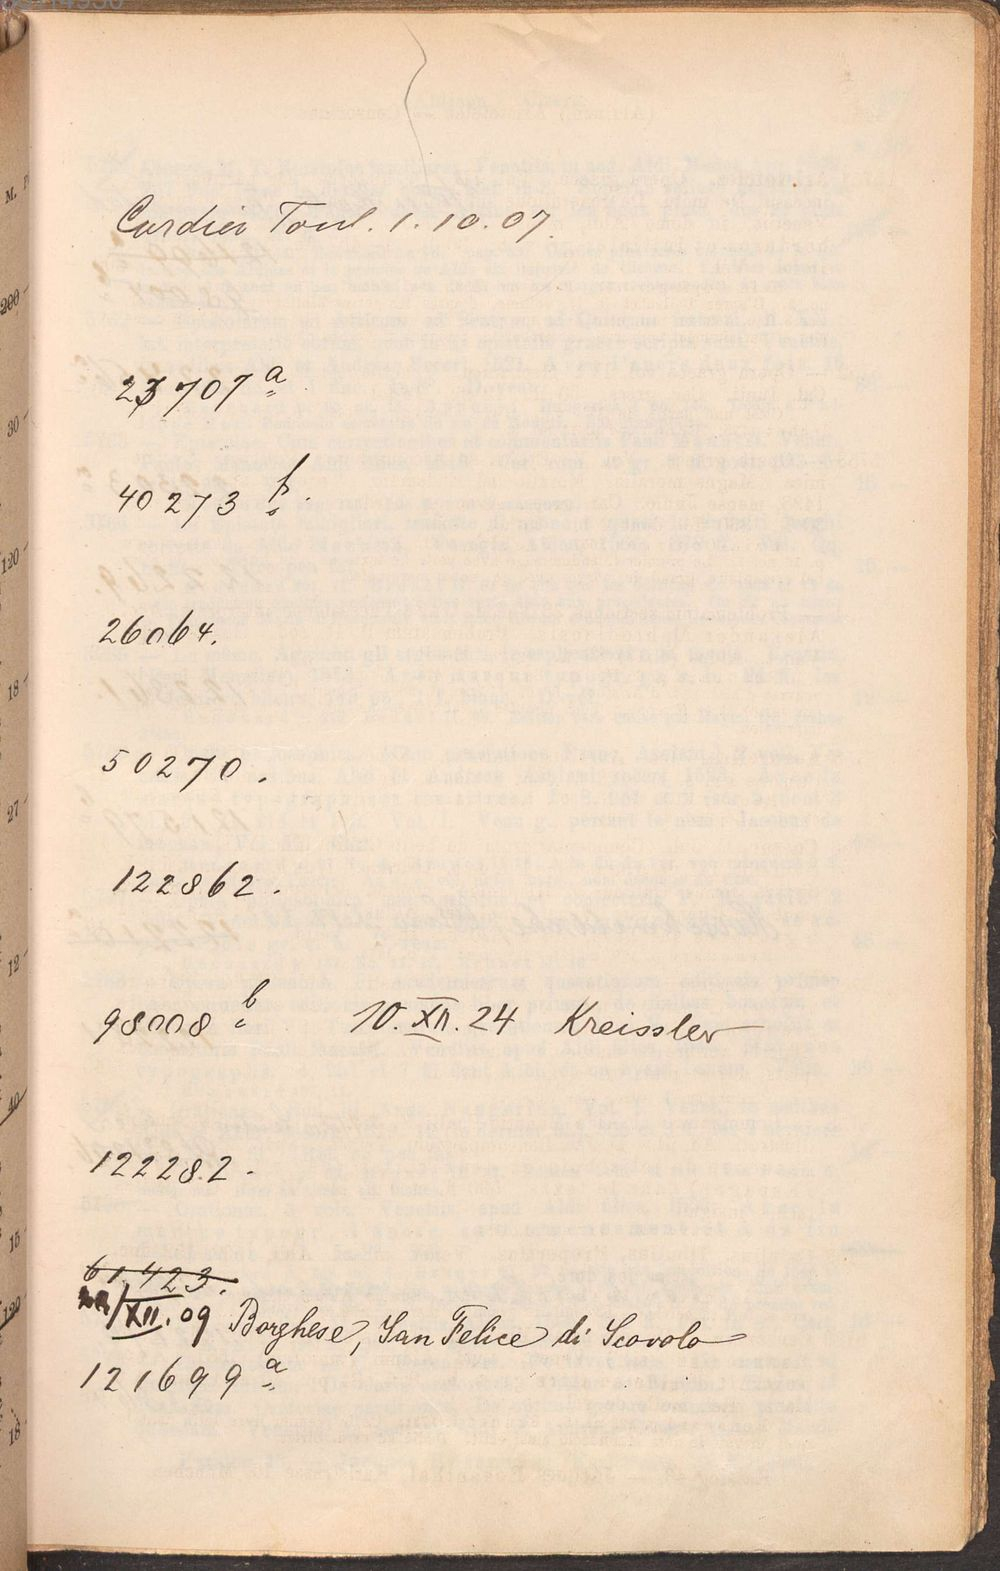 Cardier Toul. 1. 10. 07.
23707 a
40273 f.
26064.
50270.
122862.
98008 b 10. XII. 24 Kreissler
122282.
61423.
XII. 09 Borghese, San Felice di Scovolo
121699 a
M.
200
30
120
18
27
12
40
15
120
18